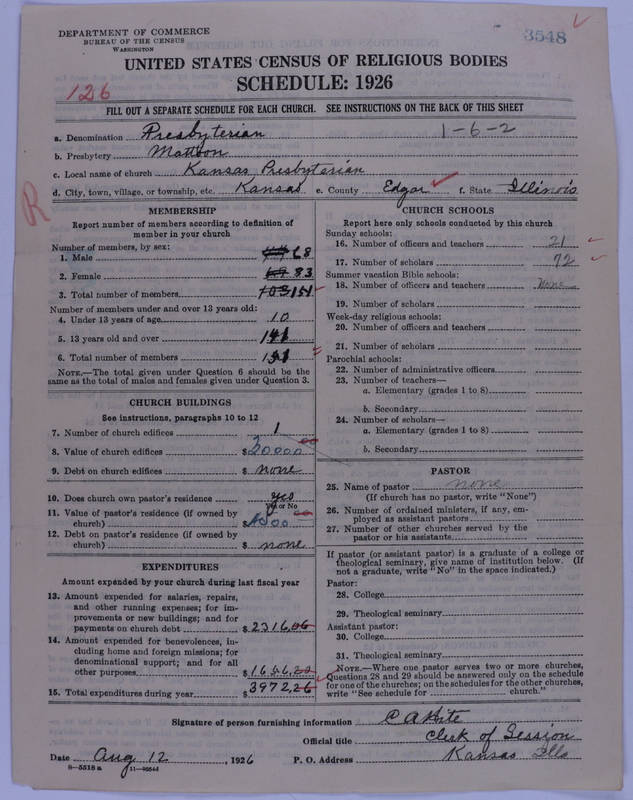 DEPARTMENT OF COMMERCE
BUREAU OF THE CENSUS
WASHINGTON
3548
UNITED STATES CENSUS OF RELIGIOUS BODIES
SCHEDULE: 1926
126
FILL OUT A SEPARATE SCHEDULE FOR EACH CHURCH. SEE INSTRUCTIONS ON THE BACK OF THIS SHEET
a. Denomination Presbyterian 1-6-2
b. Presbytery Mattoon
c. Local name of church Kansas Presbyterian
d. City, town, village, or township, etc. Kansas e. County Edgar f. State Illinois
R
MEMBERSHIP
Report number of members according to definition of
member in your church
Number of members, by sex:
1. Male 68
2. Female 83
3. Total number of members 151
Number of members under and over 13 years old:
4. Under 13 years of age 10
5. 13 years old and over 141
6. Total number of members 151
NOTE.—The total given under Question 6 should be the
same as the total of males and females given under Question 3.
CHURCH BUILDINGS
See instructions, paragraphs 10 to 12
7. Number of church edifices 1
8. Value of church edifices $
9. Debt on church edifices $ none
10. Does church own pastor's residence yes
Yes or No
11. Value of pastor's residence (if owned by
church) $
12. Debt on pastor's residence (if owned by
church) $ none
EXPENDITURES
Amount expended by your church during last fiscal year
13. Amount expended for salaries, repairs,
and other running expenses; for im-
provements or new buildings; and for
payments on church debt $ 2316.06
14. Amount expended for benevolences, in-
cluding home and foreign missions; for
denominational support; and for all
other purposes $ 1656.20
15. Total expenditures during year $ 3972.26
CHURCH SCHOOLS
Report here only schools conducted by this church
Sunday schools:
16. Number of officers and teachers 21
17. Number of scholars 72
Summer vacation Bible schools:
18. Number of officers and teachers None
19. Number of scholars
Week-day religious schools:
20. Number of officers and teachers
21. Number of scholars
Parochial schools:
22. Number of administrative officers
23. Number of teachers—
a. Elementary (grades 1 to 8)
b. Secondary
24. Number of scholars—
a. Elementary (grades 1 to 8)
b. Secondary
PASTOR
25. Name of pastor none
(If church has no pastor, write "None")
26. Number of ordained ministers, if any, em-
ployed as assistant pastors
27. Number of other churches served by the
pastor or his assistants
If pastor (or assistant pastor) is a graduate of a college or
theological seminary, give name of institution below. (If
not a graduate, write "No" in the space indicated.)
Pastor:
28. College
29. Theological seminary
Assistant pastor:
30. College
31. Theological seminary
NOTE.—Where one pastor serves two or more churches,
Questions 28 and 29 should be answered only on the schedule
for one of the churches; on the schedules for the other churches,
write "See schedule for church."
Signature of person furnishing information C A Hite
Official title Clerk of Session
Date Aug 12, 1926 P. O. Address Kansas Ills
8—5518a 11—9554d